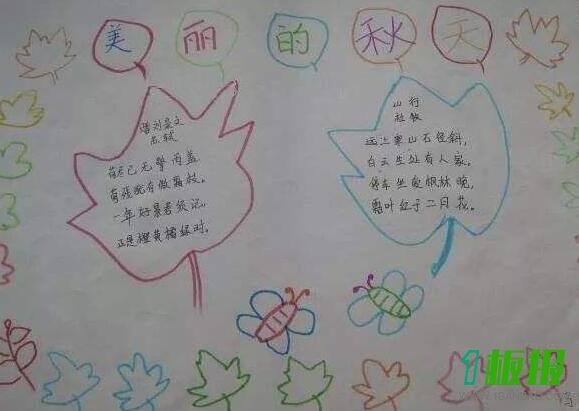 美丽的秋天
赠刘景文
苏轼
荷尽已无擎雨盖,
菊残犹有傲霜枝。
一年好景君须记,
正是橙黄橘绿时。
山行
杜牧
远上寒山石径斜,
白云生处有人家。
停车坐爱枫林晚,
霜叶红于二月花。
1板报